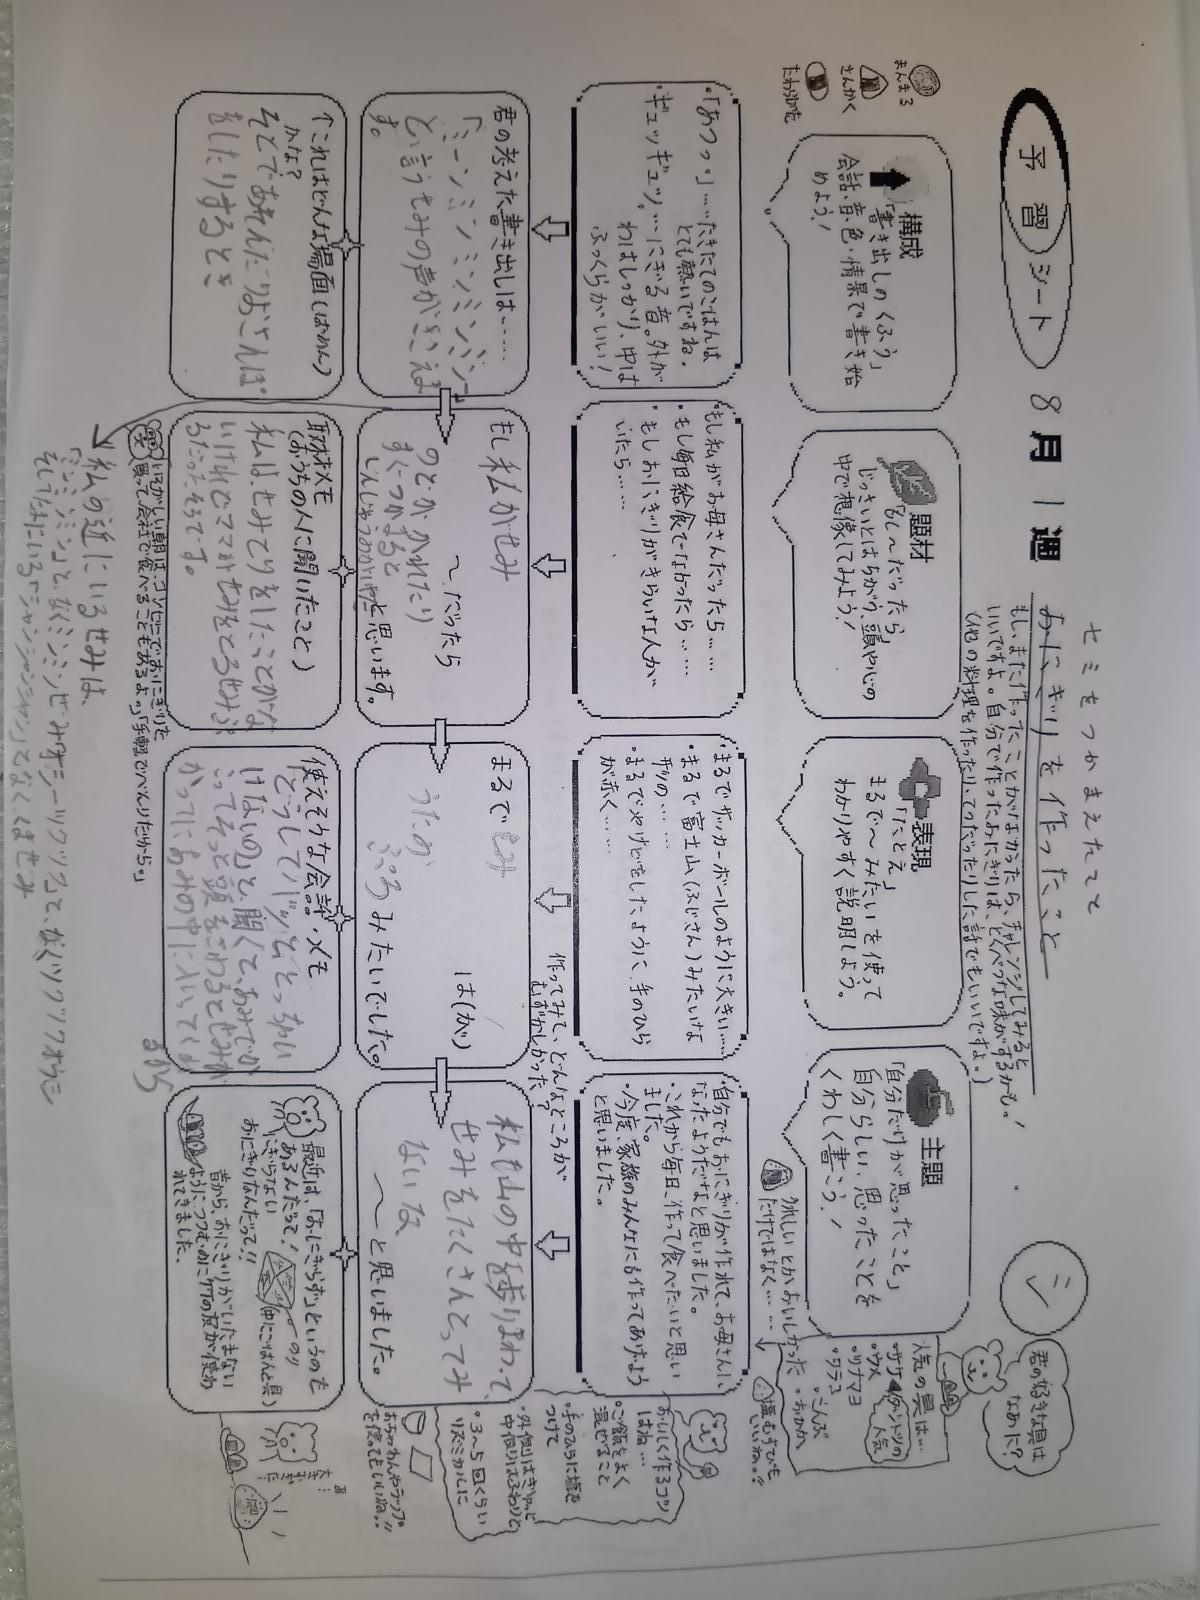 予習シート 8月1週
セミをつかまえたこと
おにぎりを作ったこと
もし、また作ったことがなかったら、チャレンジしてみると
いいですよ。自分で作ったおにぎりは、とくべつな味がするかも。
(他の料理を作ったり、てつだったりした話でもいいですよ。)
シ
君の好きな具は
なあに?
まんまる
さんかく
たわらがた
構成
「書き出しのくふう」
会話、音、色、情景で書き始
めよう!
題材
「もし~だったら」
じっさいとはちがう、頭や心の
中で想像してみよう!
表現
「たとえ」
まるで~みたいを使って
わかりやすく説明しよう。
主題
「自分だけが思ったこと」
自分らしい、思ったことを
くわしく書こう!
うれしいとかおいしかった
だけではなく……
人気の具は…
・サケ
ダントツの人気
・ウメ
・ツナマヨ
・タラコ
・こんぶ
・おかか
塩むすびも
いいね。!!
・「あつっ」……たきたてのごはんは
とても熱いですね。
・ギュッギュッ…にぎる音。外が
わはしっかり、中は
ふっくらがいい!
・もし私がお母さんだったら……
・もし毎日給食でなかったら……
・もしおにぎりがきらいな人が
いたら……
・まるでサッカーボールのように大きい……
・まるで富士山(ふじさん)みたいな
形の……
・まるでやけどをしたように、手のひら
が赤く……
・自分でもおにぎりが作れて、お母さんに
なったようだなと思いました。
・これから毎日、作って食べたいと思い
ました。
・今度、家族のみんなにも作ってあげよう
と思いました。
おいしく作るコツ
はね…
・ご飯をよく
混ぜること
・手のひらに塩を
つけて
・外側はぎゅっと
中側はふわりと
・3~5回くらい
リズミカルに
おちゃわんやラップ
を使ってもいいね。!!
作ってみて、どんなところが
むずかしかった?
君の考えた書き出しは……
「ミーンミンミンミンミン」
と言うせみの声がきこえま
す。
もし私がせみ
~だったら
のどがかれたり
すぐつかまると
と思います。
まるでせみ
は(が)
うたが
みたいでした。
私も山の中を歩りまわって、
せみをたくさんとってみ
たいな
~と思いました。
↑これはどんな場面(ばめん)
かな?
そとであそんだりおさんぽ
をしたりするとき
取材メモ
(おうちの人に聞いたこと)
私はせみとりをしたことがな
いけれどママがせみをとるせみ
るだったそうです。
使えそうな会話・メモ
「どうしてバッとっちゃい
けないの」と聞くと、あみでか
ってそっと頭をこわるとせみが
かってにあみの中に入ってくる
るから
最近は、「おにぎらず」というのも
あるんだって!
にぎらない
おにぎりなんだって!!
(中にごはんと具)
昔から、おにぎりがいたまない
ようにつつむのに竹の皮が使わ
れてきました。
いそがしい朝は、コンビニでおにぎりを
買って会社で食べることもあるよ。「手軽でべんりだから。」
私の近じにいるせみは、
「ミンミンミン」となくミンミンぜみ「オーシーツクツク」と、なくツクツクおうミ
そしてたまにいる「シャンシャンシャン」となくくませみ